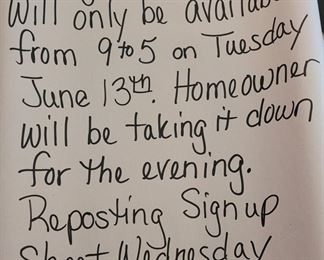 Will only be available
from 9 to 5 on Tuesday
June 13th. Homeowner
will be taking it down
for the evening.
Reposting Sign up
Sheet Wednesday